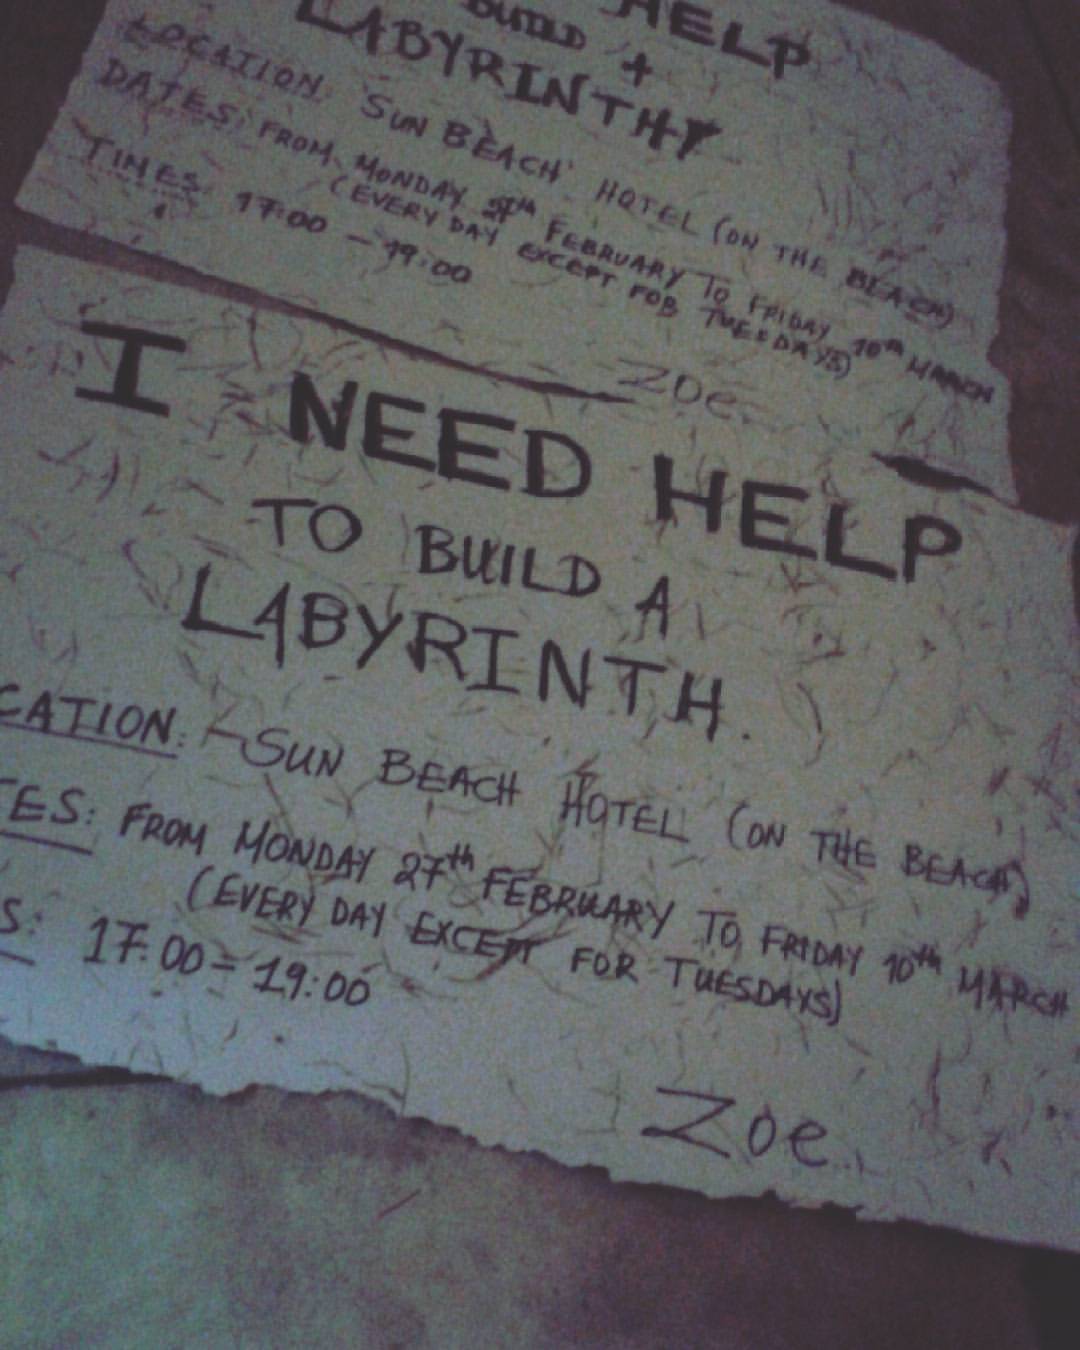 HELP
BUILD +
LABYRINTH
LOCATION: SUN BEACH HOTEL (ON THE BEACH)
DATES: FROM MONDAY 27th FEBRUARY TO FRIDAY 10th MARCH
(EVERY DAY EXCEPT FOR TUESDAYS)
TIMES: 17:00 - 19:00
ZOE
I NEED HELP
TO BUILD A
LABYRINTH.
CATION: SUN BEACH HOTEL (ON THE BEACH)
TES: FROM MONDAY 27th FEBRUARY TO FRIDAY 10th MARCH
(EVERY DAY EXCEPT FOR TUESDAYS)
S: 17:00 - 19:00
Zoe